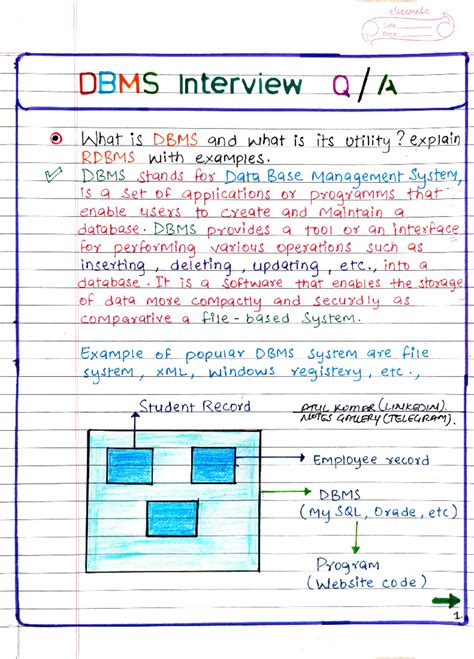 classmate
Date
Page
DBMS Interview Q/A
What is DBMS and what is its utility? explain
RDBMS with examples.
DBMS stands for Data Base Management System,
is a set of applications or programms that
enable users to create and Maintain a
database. DBMS provides a tool or an interface
for performing various operations such as
inserting, deleting, updating, etc., into a
database. It is a software that enables the storage
of data more compactly and securdly as
comparative a file-based System.
Example of popular DBMS system are file
system, XML, Windows registery, etc.,
Student Record
ATUL KUMAR (LINKEDIN).
NOTES GALLERY (TELEGRAM).
Employee record
DBMS
(My SQL, Oracle, etc)
Program
(Website code)
1.